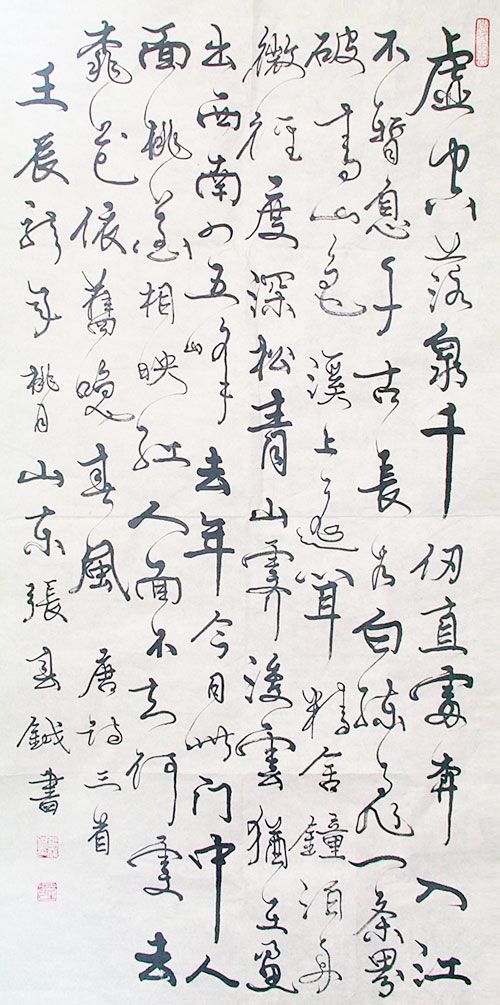 虚空落泉千仞直雷奔入江
不暫息千古長如白練飛一条界
破青山色溪上遥聞精舍鐘泊舟
微徑度深松青山霽後雲猶在畫
出西南四五峯去年今日此门中人
面桃花相映红人面不知何處去
桃花依舊笑春風 唐詩三首
壬辰龍年桃月山东張春鉞書